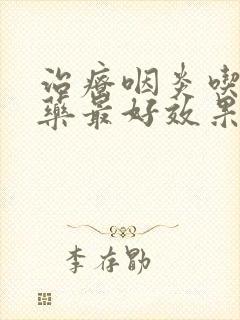 治疗咽炎喫
藥最好效果
李存勖